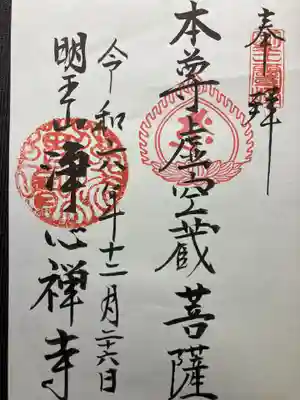 奉拜
本尊虚空蔵菩薩
令和六年十二月二十六日
明王山淨心禅寺